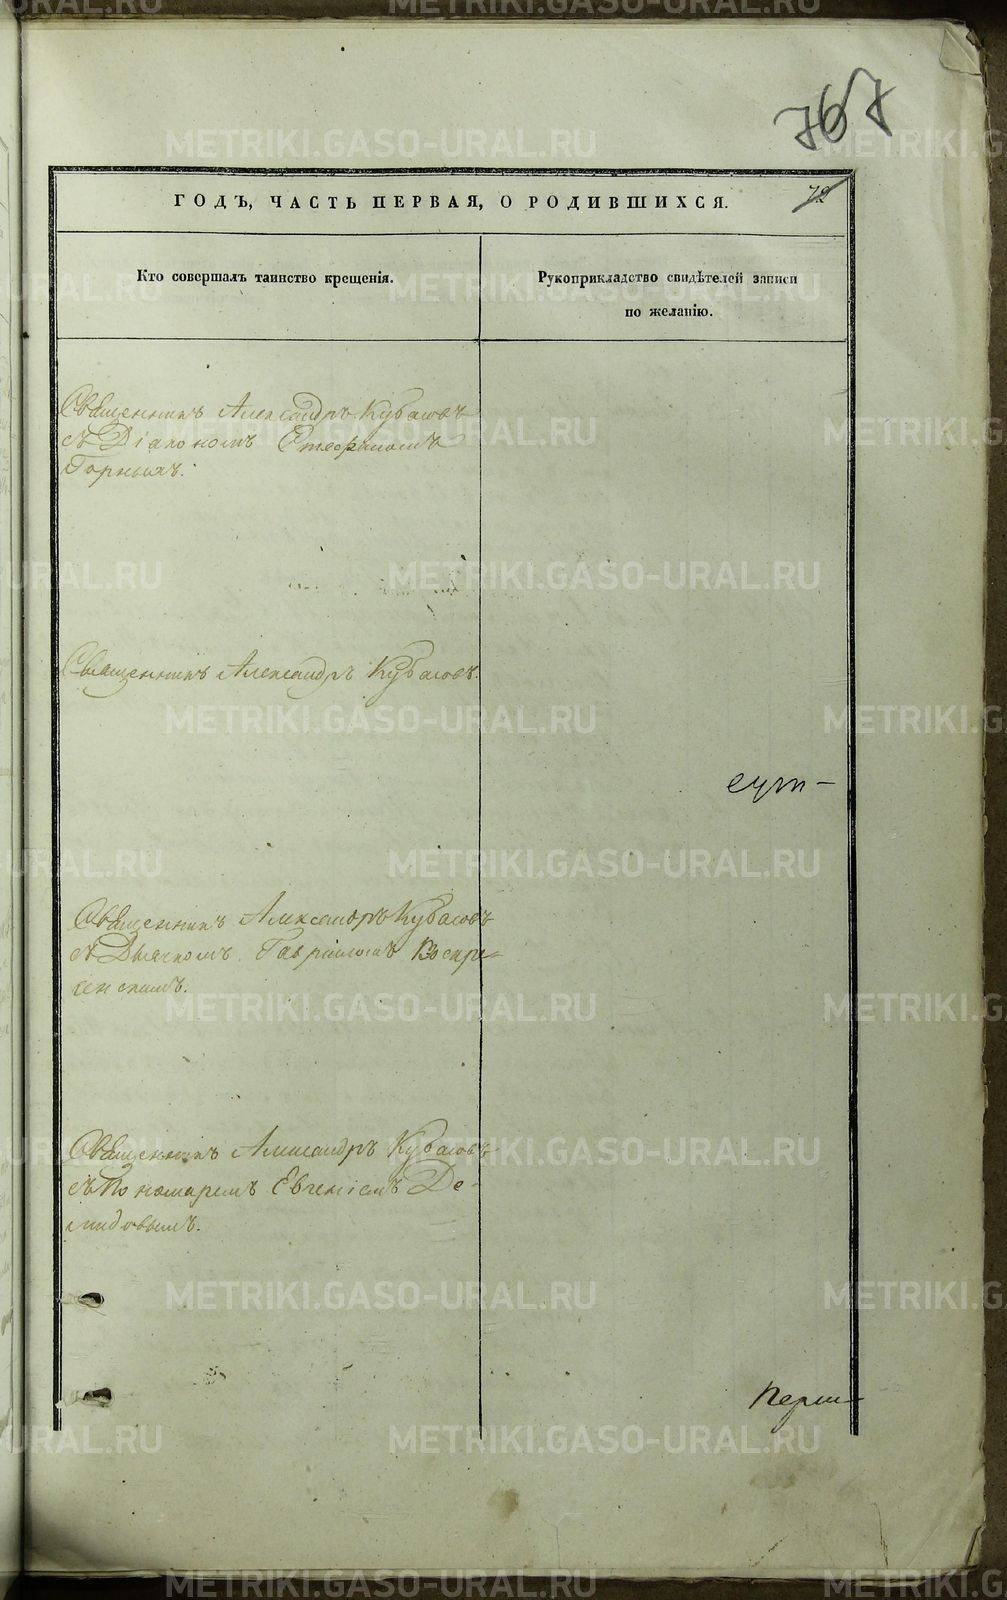 767
ГОДЪ, ЧАСТЬ ПЕРВАЯ, О РОДИВШИХСЯ.
72
Кто совершалъ таинство крещенія.
Рукоприкладство свидѣтелей записи
по желанію.
Священникъ Александръ Кубасовъ
съ Діакономъ Стефаномъ
Горныхъ.
Священникъ Александръ Кубасовъ.
Священникъ Александръ Кубасовъ
съ Дьячкомъ Гавріиломъ Воскре-
сенскимъ.
Священникъ Александръ Кубасовъ
съ Пономаремъ Евгеніемъ Де-
мидовымъ.
Перм-
METRIKI.GASO-URAL.RU